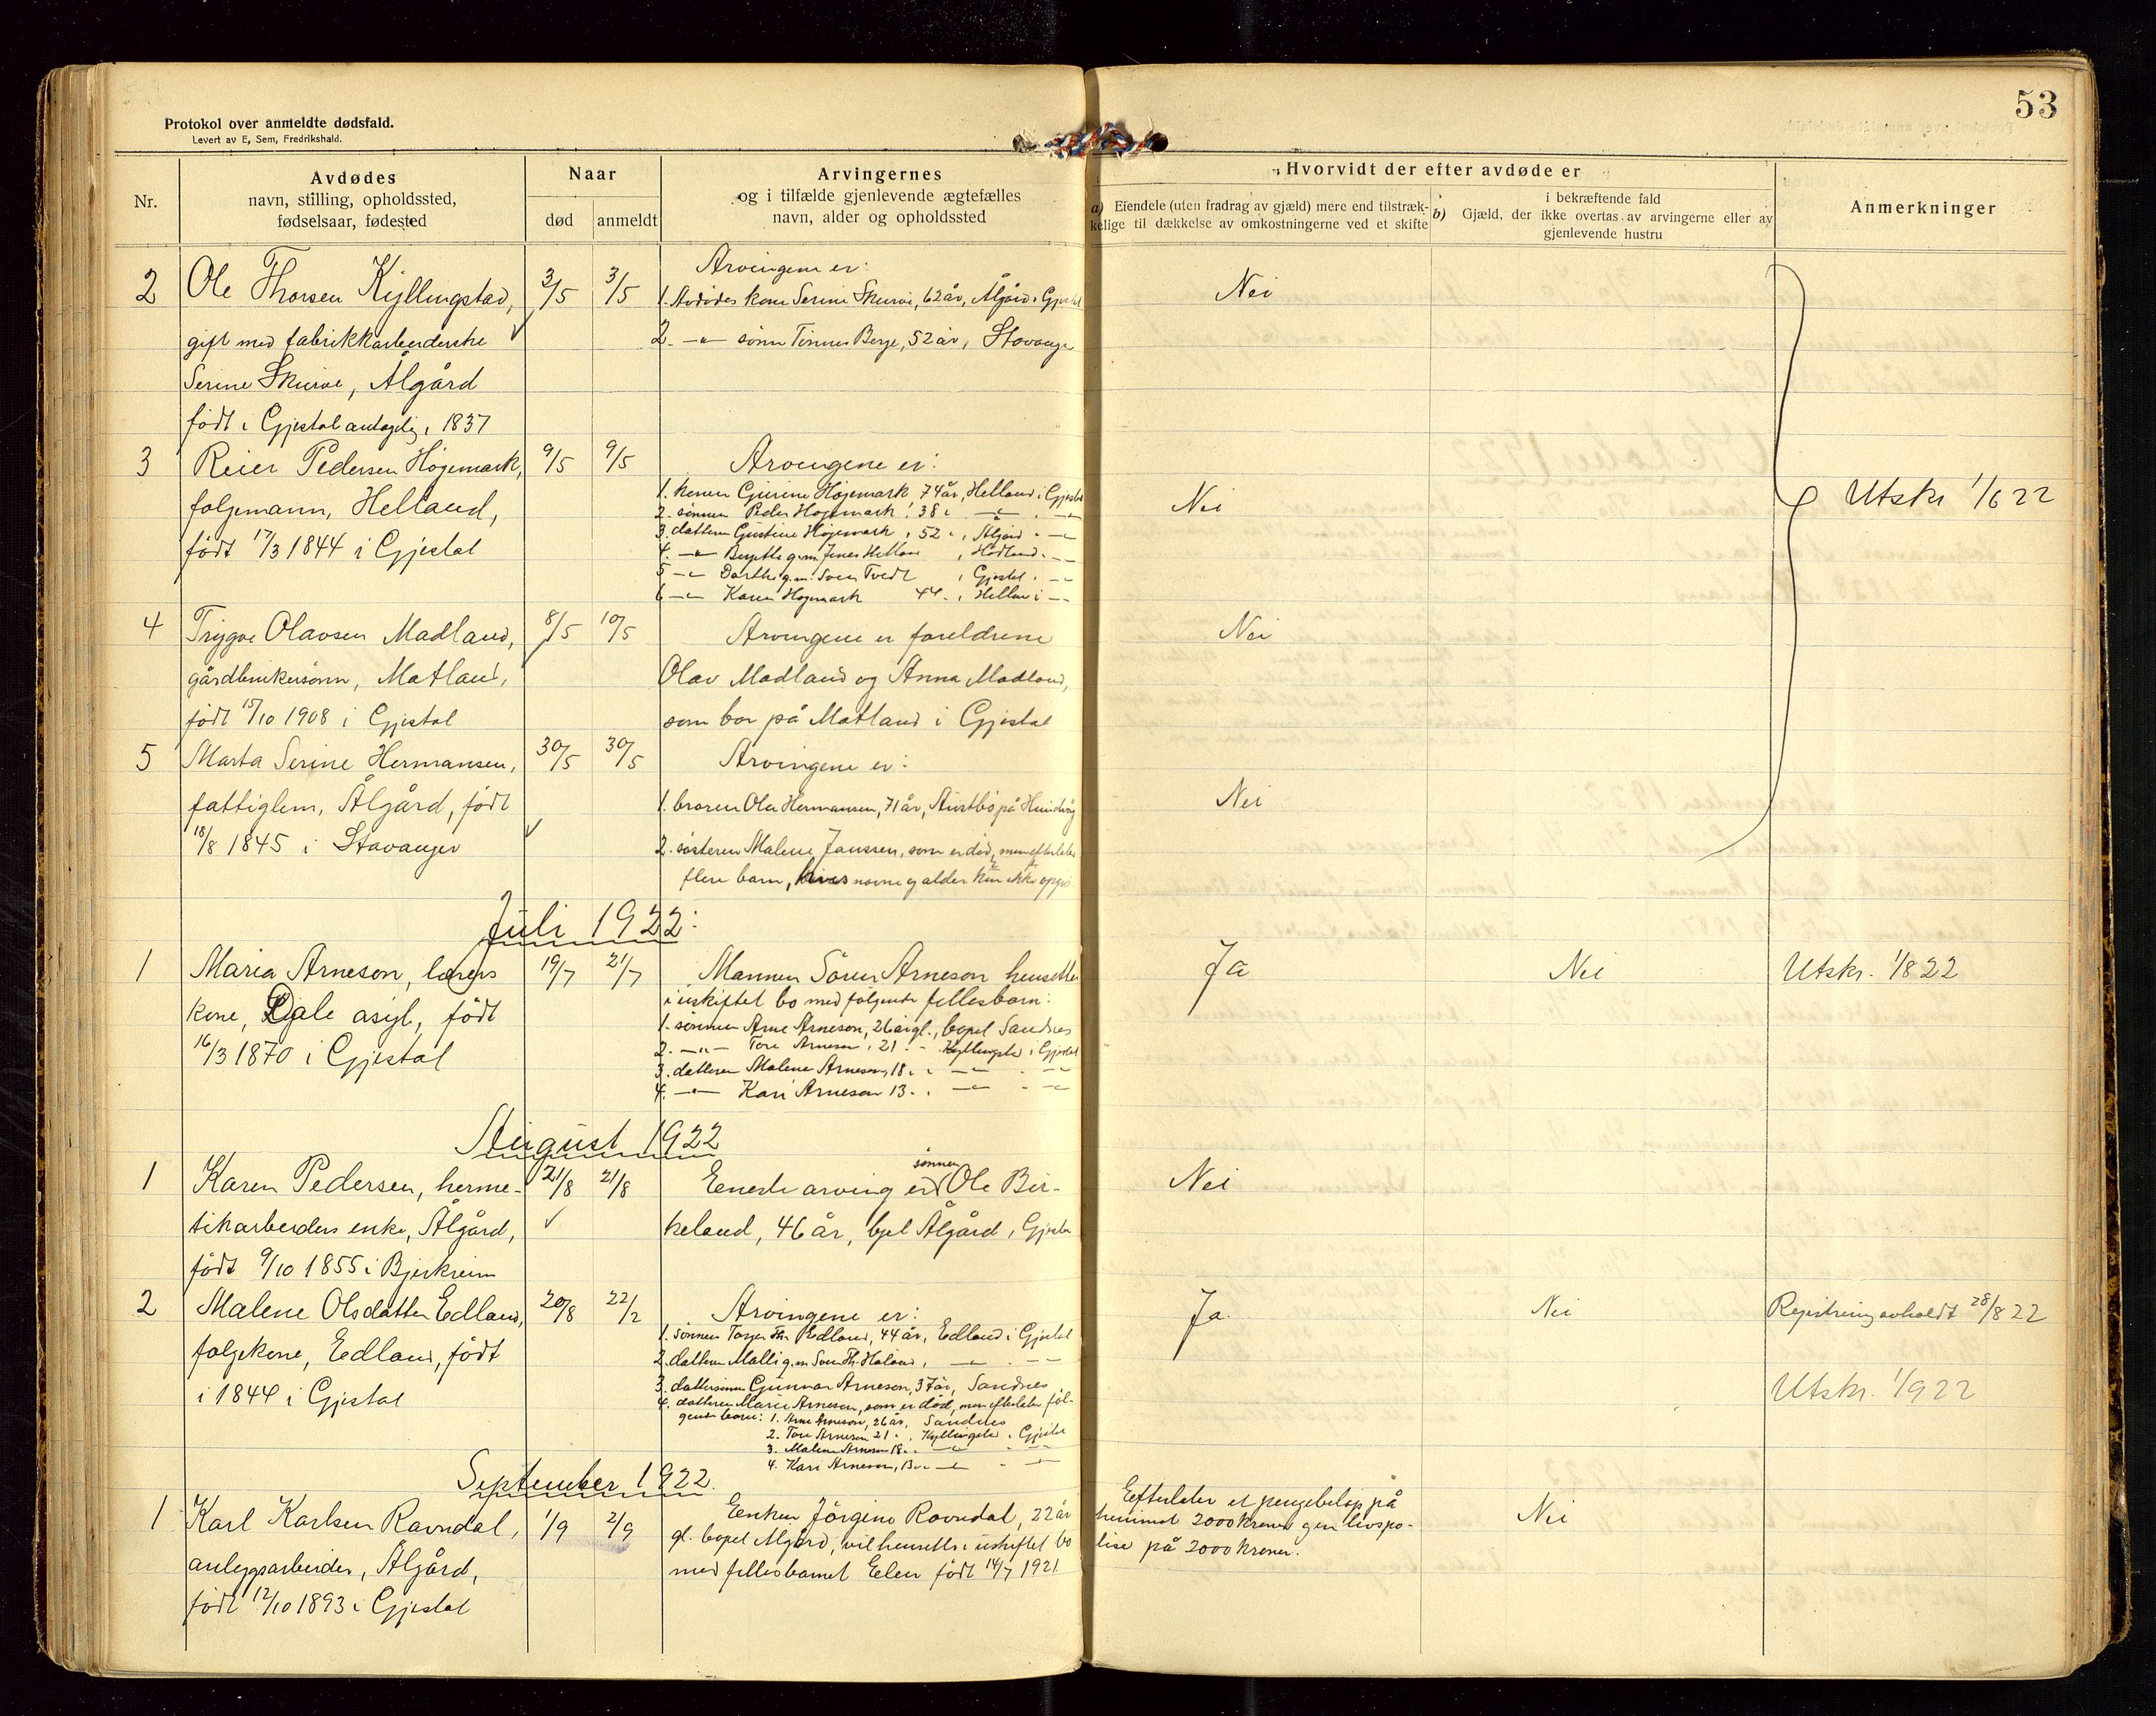 53
Protokol over anmeldte dødsfald.
Levert av E. Sem, Fredrikshald.
Nr.
Avdødes
navn, stilling, opholdssted,
fødselsaar, fødested
Naar
død
anmeldt
Arvingernes
og i tilfælde gjenlevende ægtefælles
navn, alder og opholdssted
Hvorvidt der efter avdøde er
a) Eiendele (uten fradrag av gjæld) mere end tilstræk-
kelige til dækkelse av omkostningerne ved et skifte
b) i bekræftende fald
Gjæld, der ikke overtas av arvingerne eller av
gjenlevende hustru
Anmerkninger
2
Ole Thorsen Kyllingstad,
gift med fabrikkarbeiderske
Serine Skurve, Ålgård
født i Gjestal antagelig 1837
3/5
3/5
Arvingene er:
1. Avdødes kone Serine Skurve, 62 år, Ålgård i Gjestal
2. -"- sønn Tønnes Berge, 52 år, Stavanger
Nei
3
Reier Pedersen Højemark,
følgemann, Helland,
født 17/3 1844 i Gjestal
9/5
9/5
Arvingene er:
1. konen Gurine Højemark, 74 år, Helland i Gjestal
2. sønnen Peder Højemark, 38 " -"- . -"-
3. datteren Gustine Højemark, 52 ", Ålgård " -"-
4. -"- Bergitte g.m. Jonas Helland, Hodland. -"-
5. -"- Dorthe g.m. Sven Tvedt, Gjestal. -"-
6. -"- Karen Højemark 44 ., Helland i -"-
Nei
Utskr 1/6 22
4
Trygve Olavsen Madland,
gårdbrukersønn, Matland,
født 15/10 1908 i Gjestal
8/5
10/5
Arvingene er foreldrene
Olav Madland og Anna Madland,
som bor på Matland i Gjestal
Nei
5
Marta Serine Hermansen,
fattiglem, Ålgård, født
18/8 1845 i Stavanger
30/5
30/5
Arvingene er:
1. broren Ola Hermansen, 71 år, Austbø på Hundvåg
2. søsteren Malene Janssen, som er død, men efterlater
flere barn, hvis navne og alder kan ikke opgis
Nei
Juli 1922:
1
Maria Arneson, lærers
kone, Dale asyl, født
16/3 1870 i Gjestal
19/7
21/7
Mannen Sören Arneson hensetter
i uskiftet bo med følgende fellesbarn:
1. sønnen Arne Arneson, 26 år gl., bopel Sandnes
2. -"- Tore Arneson, 21 " - Kyllingsta i Gjestal
3. datteren Malene Arneson, 18 " " -"- . -"-
4. -"- Kari Arneson 13 - . -"- - -"-
Ja
Nei
Utskr. 1/8 22
August 1922
1
Karen Pedersen, herme-
tikarbeiders enke, Ålgård,
født 9/10 1855 i Bjerkreim
21/8
21/8
Eneste arving er sønnen Ole Bir-
keland, 46 år, bopel Ålgård i Gjestal
Nei
2
Malene Olsdatter Edland,
følgekone, Edland, født
i 1844 i Gjestal
20/8
22/2
Arvingene er:
1. Sønnen Torger Th. Edland, 44 år, Edland i Gjestal
2. datteren Malli g.m. Sven Th. Haland, -"- . -"-
3. dattersønnen Gunnar Arneson, 37 år, Sandnes
4. datteren Marie Arneson, som er død, men efterlater føl-
gende barn: 1. Arne Arneson, 26 år, Sandnes
2. Tore Arneson 21 " . Kyllingsta i Gjestal
3. Malene Arneson 18 " . -"- - -"-
4. Kari Arneson, 13 " " -"- - -"-
Ja
Nei
Registrering avholdt 28/8 22
Utskr. 1/9 22
September 1922.
1
Karl Karlsen Ravndal,
anleggsarbeider, Ålgård,
født 12/10 1893 i Gjestal
1/9
2/9
Enken Jörgine Ravndal, 22 år
gl. bopel Ålgård, vil hensette i uskiftet bo
med fellesbarnet Elen født 14/7 1921
Efterlater et pengebeløp på
henimot 2000 kroner og en livspo-
lise på 2000 kroner.
Nei